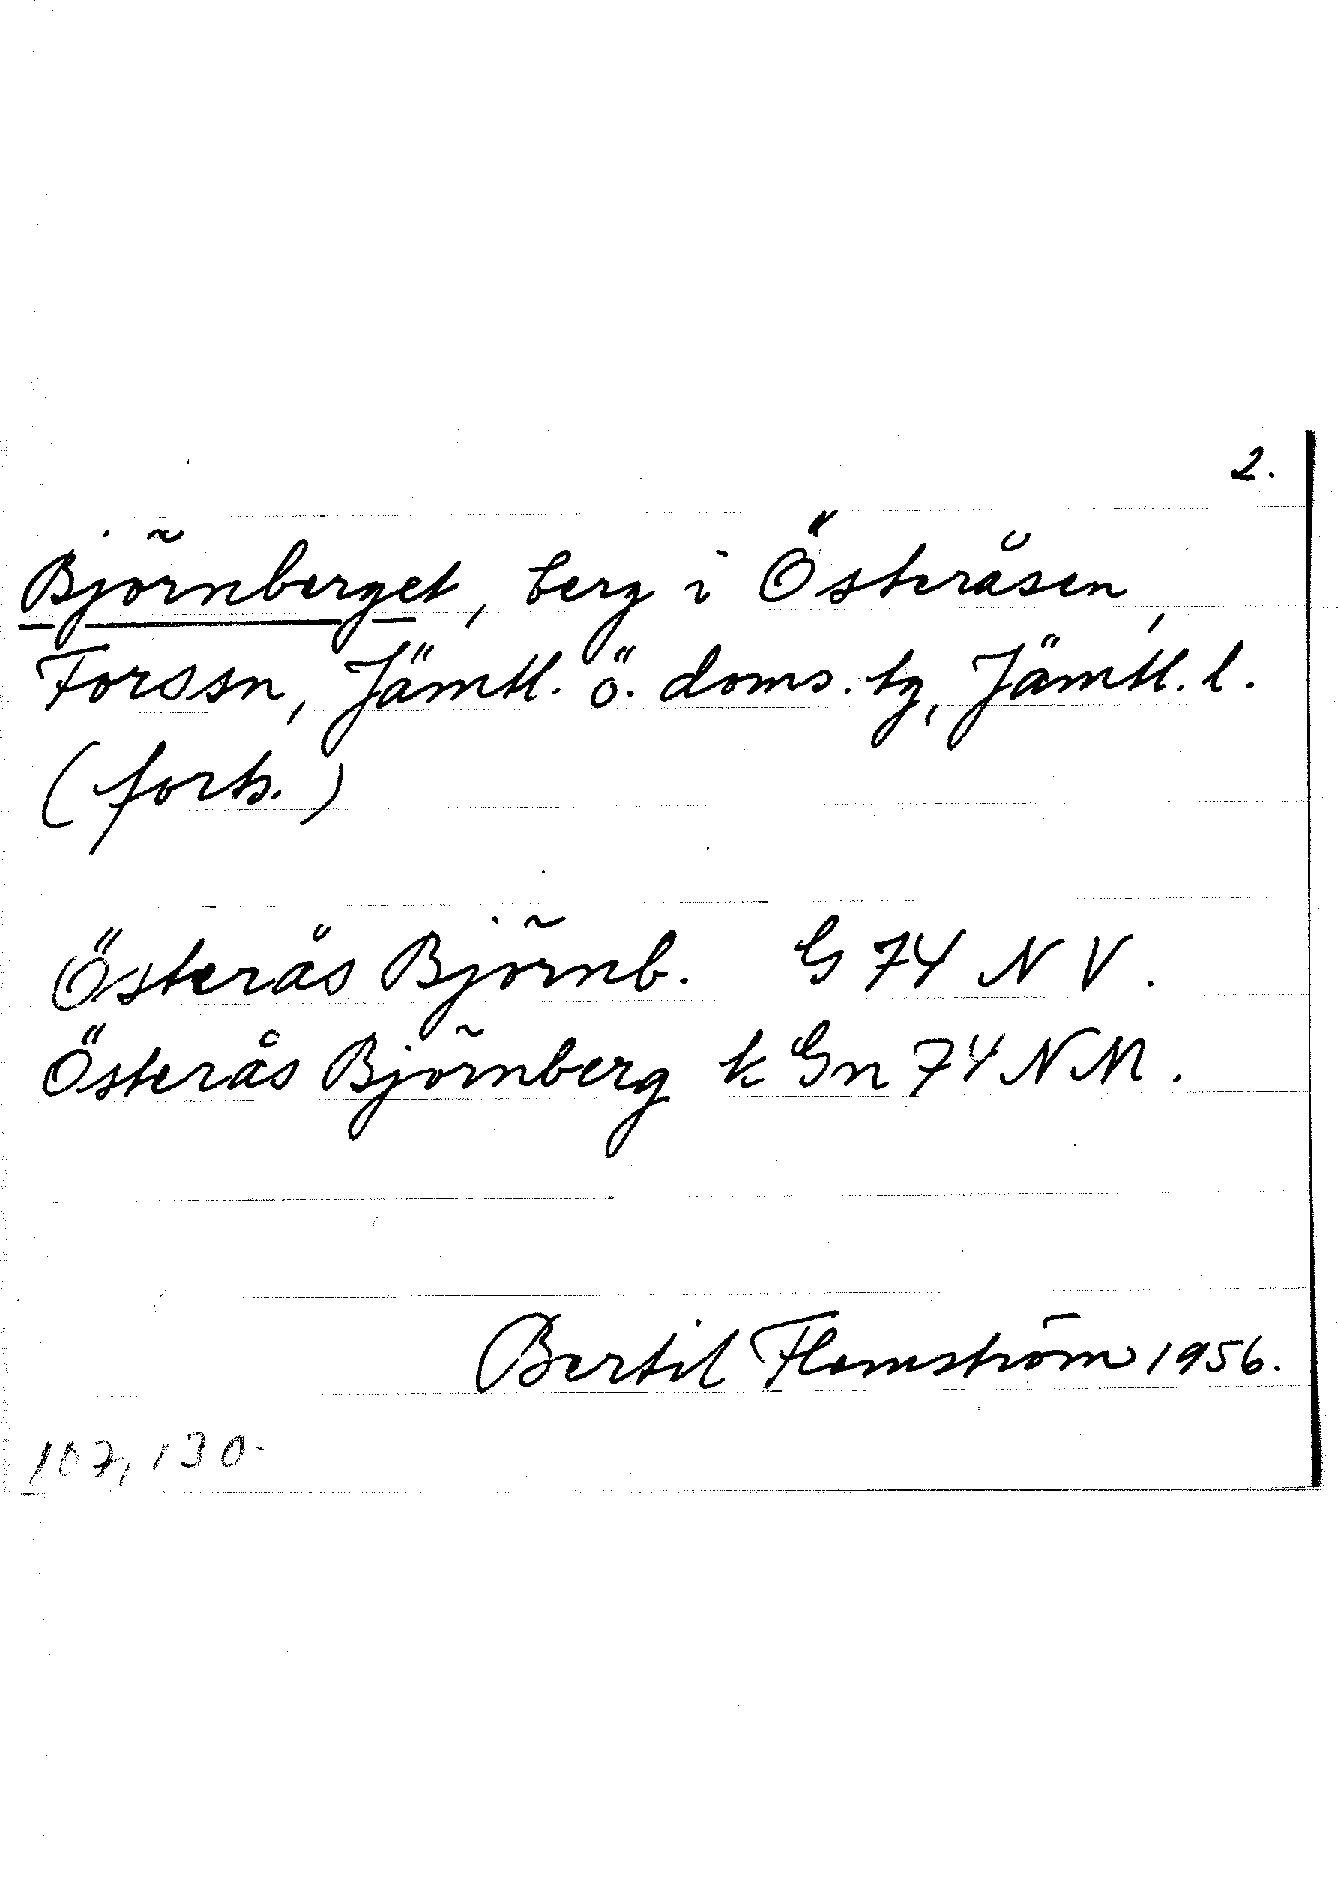 2.
Björnberget, berg i Österåsen,
Forssn, Jämtl. ö. doms. tg, Jämtl. l.
(forts.)
Österås Björnb. G 74 N V.
Österås Björnberg k Gn 74 NM.
Bertil Flemström 1956.
107, 130.